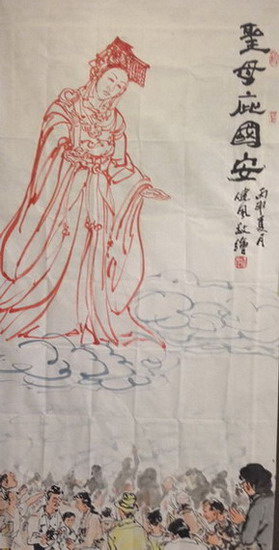 聖母庇國安
丙申夏月
健風敬繪